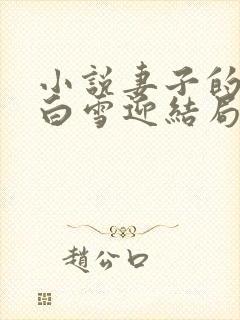 小說妻子的
白雪迎結局
趙公口